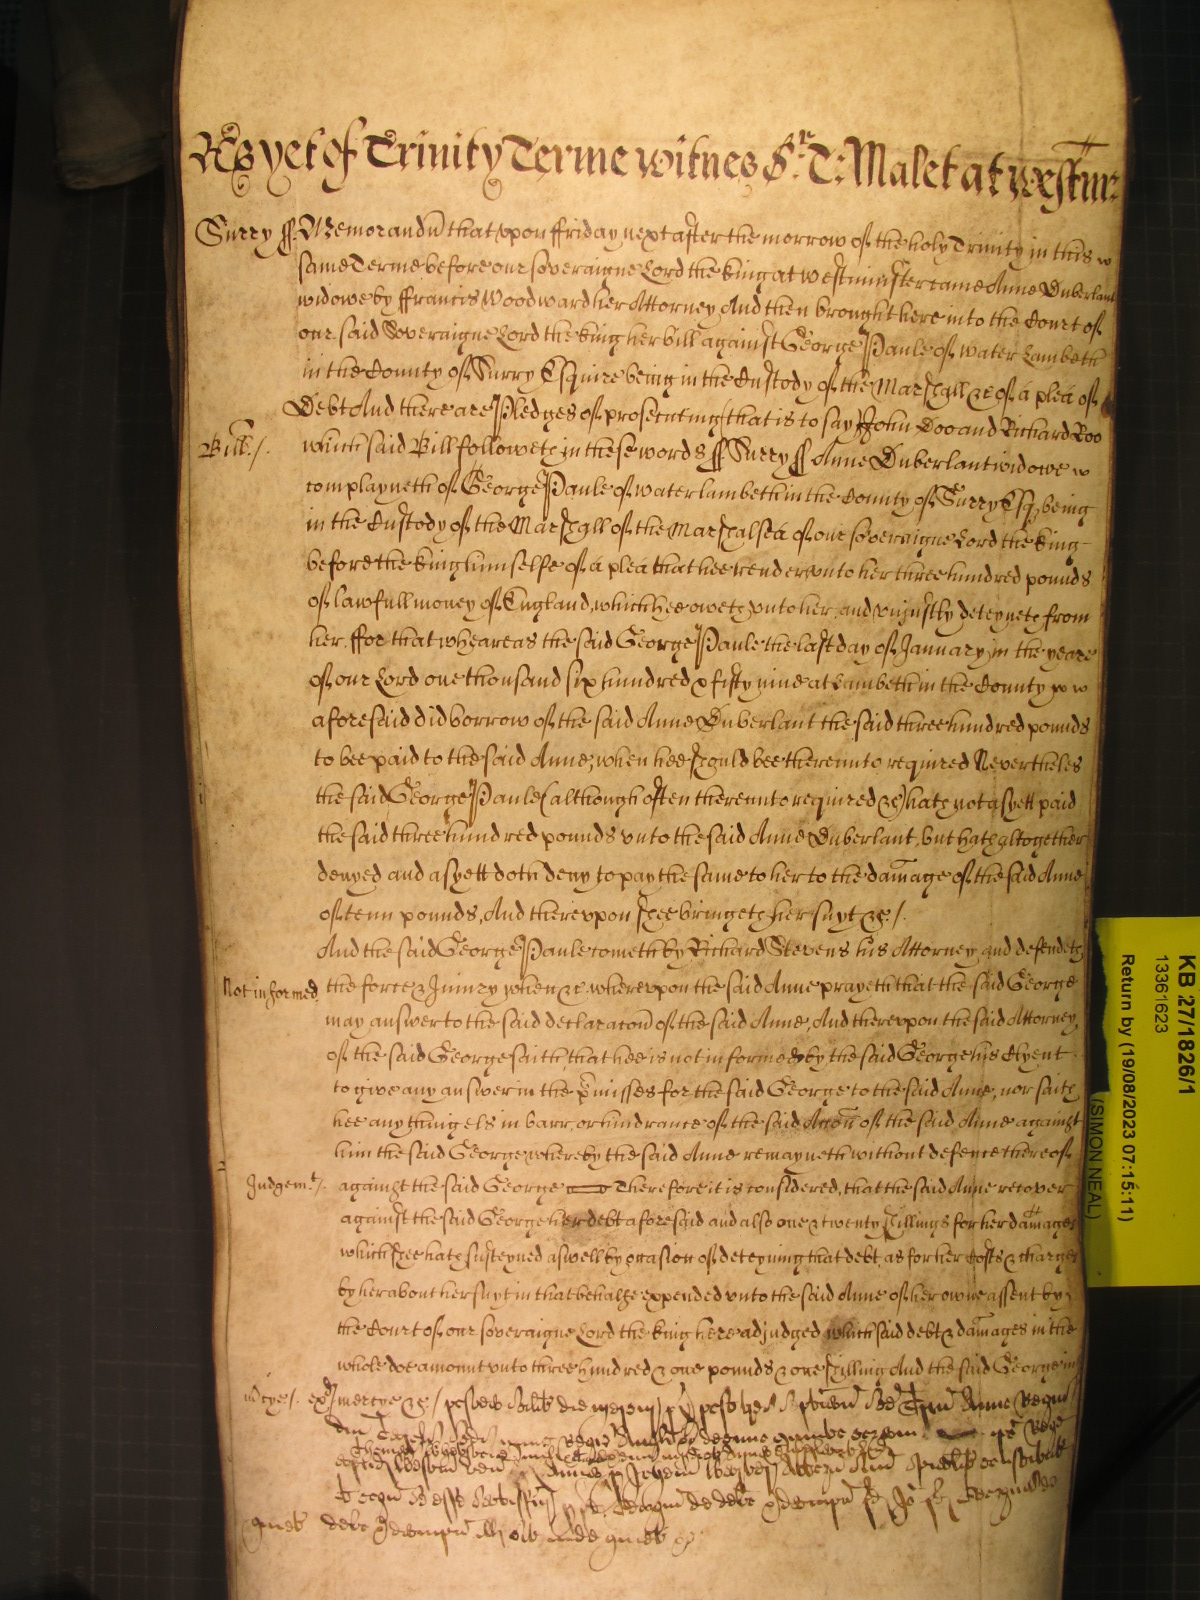 As yet of Trinity Terme witnes Sr. T: Malet at Westmr.
Surry ss Memorandũ that upon ffriday next after the morrow of the holy Trinity in this
same Terme before our soveraigne Lord the King at Westminster came Anne Duberlant
widowe by ffrancis Woodward her Attorney And then brought here into the Court of
our said Soveraigne Lord the King her bill against George Paule of water Lambeth
in the County of Surry Esquire being in the Custody of the Marshall &c of a plea of
Debt And there are Pledges of prosecuting (that is to say) John Doo and Richard Roo
Bill /. which said Bill followeth in these words ss Surry ss Anne Duberlant widowe
complayneth of George Paule of water lambeth in the County of Surry Esq being
in the Custody of the Marshall of the Marshalsea of our soveraigne Lord the King
before the King himselfe of a plea that hee render unto her three hundred pounds
of lawfull money of England, which hee oweth unto her and unjustly deteyneth from
her. ffor that wheareas the said George Paule the last day of January in the yeare
of our Lord one thousand six hundred & fifty nine at Lambeth in the County
aforesaid did borrow of the said Anne Duberlant the said three hundred pounds
to bee paid to the said Anne, when hee should bee thereunto required Nevertheles
the said George Paule (although often thereunto required &c) hath not as yett paid
the said three hundred pounds unto the said Anne Duberlant, but hath altogether
denyed and as yett doth deny to pay the same to her to the damage of the said Anne
of tenn pounds, And thereupon shee bringeth her suyt &c /.
And the said George Paule cometh by Richard Stevens his Attorney and defendeth
Not informed the force & Iniury when &c. whereupon the said Anne prayeth that the said George
may answer to the said declaracõn of the said Anne, And thereupon the said Attorney
of the said George saith, that hee is not informed by the said George his Clyent
to give any answer in the p̃misses for the said George to the said Anne, nor saith
hee any thing els in barr, or hindrance of the said Acc̃on of the said Anne against
him the said George whereby the said Anne remayneth without defence thereof
Judgemt. /. against the said George Therefore it is considered, that the said Anne recover
against the said George her debt aforesaid and also one & twenty shillings for her damages
which shee hath susteyned aswell by ocasion of deteyning that debt, as for her Costs & charges
by her about her suyt in that behalfe expended unto the said Anne of her owne assent by
the Court of our soveraigne Lord the King here adjudged which said debt & damages in the
whole doe amount unto three hundred & one pounds & one shilling And the said George in
mcye /. mercye &c /